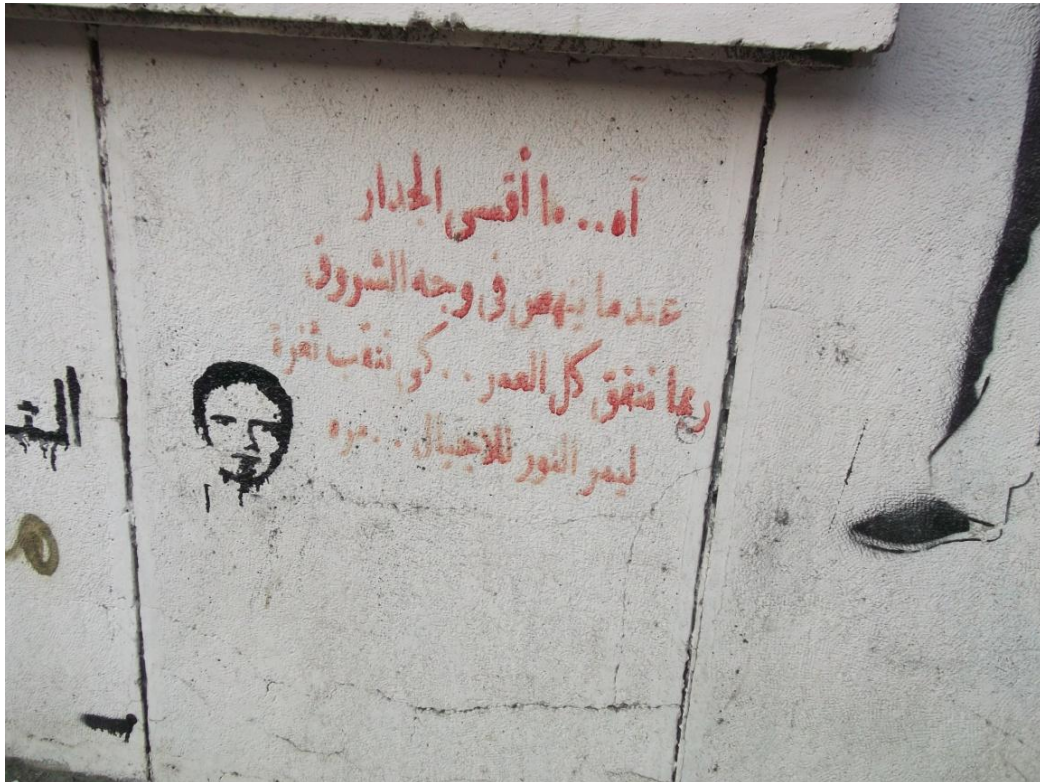 آه...ما أقسى الجدار
عندما ينهض فى وجه الشروق
ربما ننفق كل العمر..كى ننقب ثغرة
ليمر النور للاجيال..مره